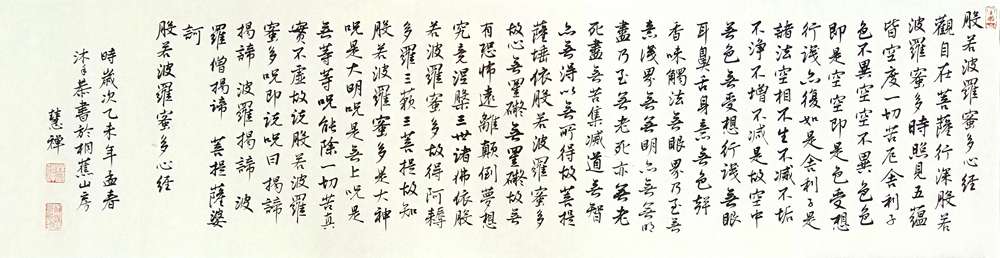 般若波羅蜜多心經
觀自在菩薩行深般若
波羅蜜多時照見五蘊
皆空度一切苦厄舍利子
色不異空空不異色色
即是空空即是色受想
行識亦復如是舍利子是
諸法空相不生不滅不垢
不淨不增不減是故空中
無色無受想行識無眼
耳鼻舌身意無色聲
香味觸法無眼界乃至無
意識界無無明亦無無明
盡乃至無老死亦無老
死盡無苦集滅道無智
亦無得以無所得故菩提
薩埵依般若波羅蜜多
故心無罣礙無罣礙故無
有恐怖遠離顛倒夢想
究竟涅槃三世諸佛依般
若波羅蜜多故得阿耨
多羅三藐三菩提故知
般若波羅蜜多是大神
呪是大明呪是無上呪是
無等等呪能除一切苦真
實不虛故說般若波羅
蜜多呪即說呪曰揭諦
揭諦 波羅揭諦 波
羅僧揭諦 菩提薩婆
訶
般若波羅蜜多心經
時歲次乙未年孟春
沐手恭書於桐蕉山房
慧禪